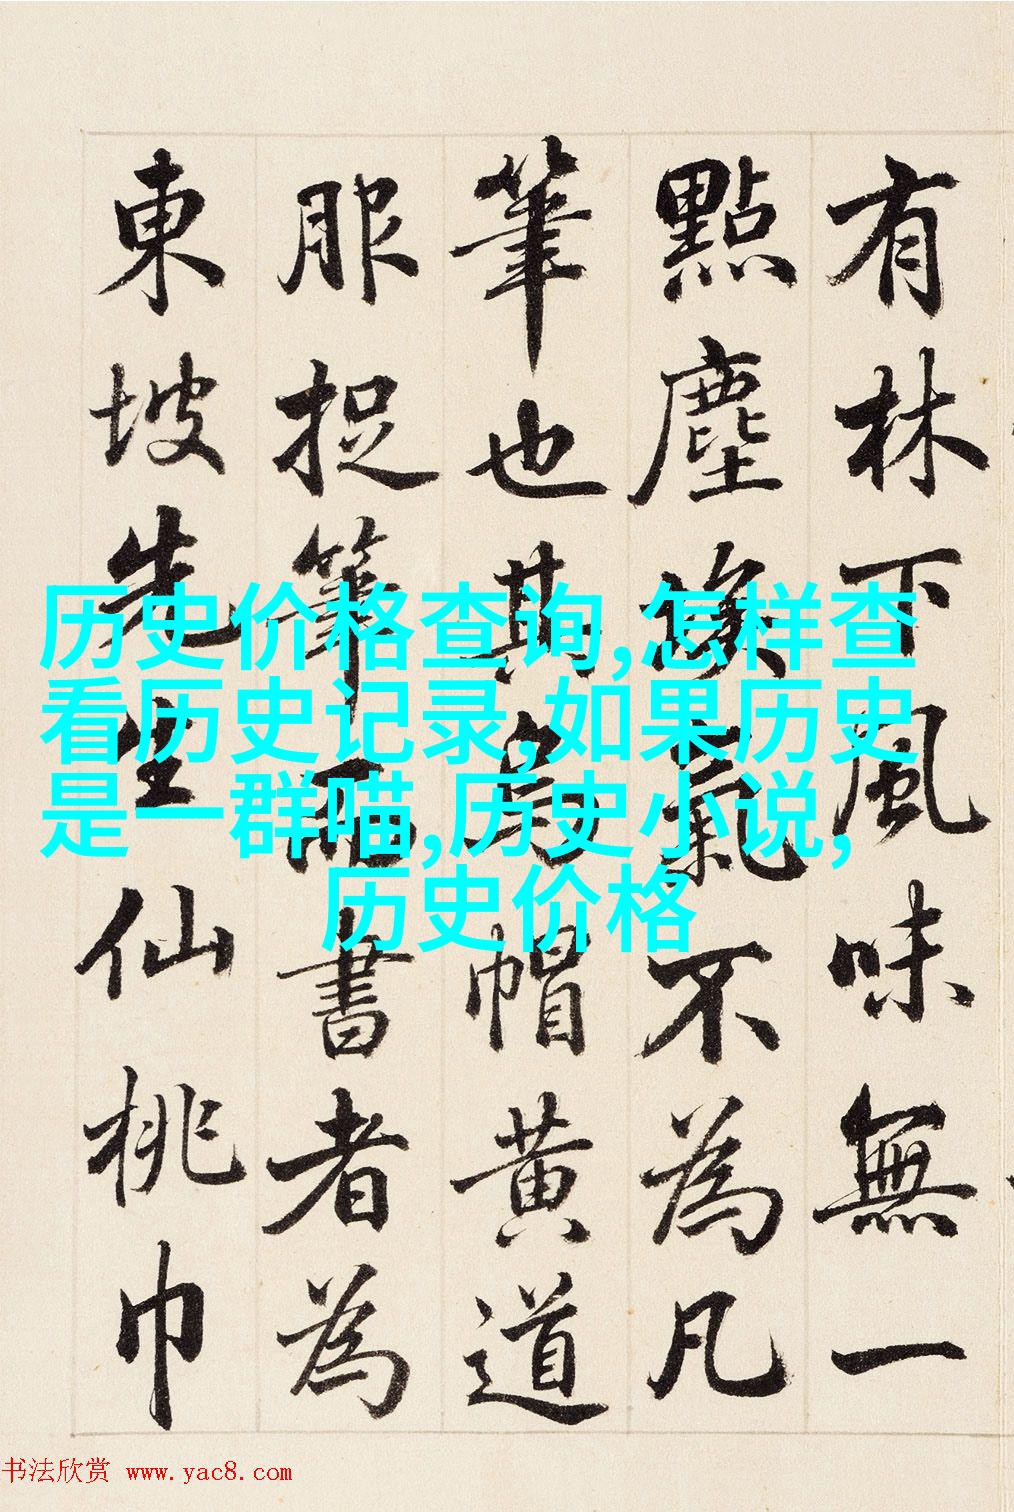 有林下風味無一
點塵埃氣不為凡
筆也其烏帽黃道
服捉筆而書者為
東坡先生仙桃巾
历史价格查询,怎样查
看历史记录,如果历史
是一群喵,历史小说,
历史价格
书法欣赏 www.yac8.com